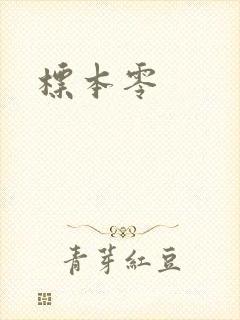 標本零
青芽紅豆